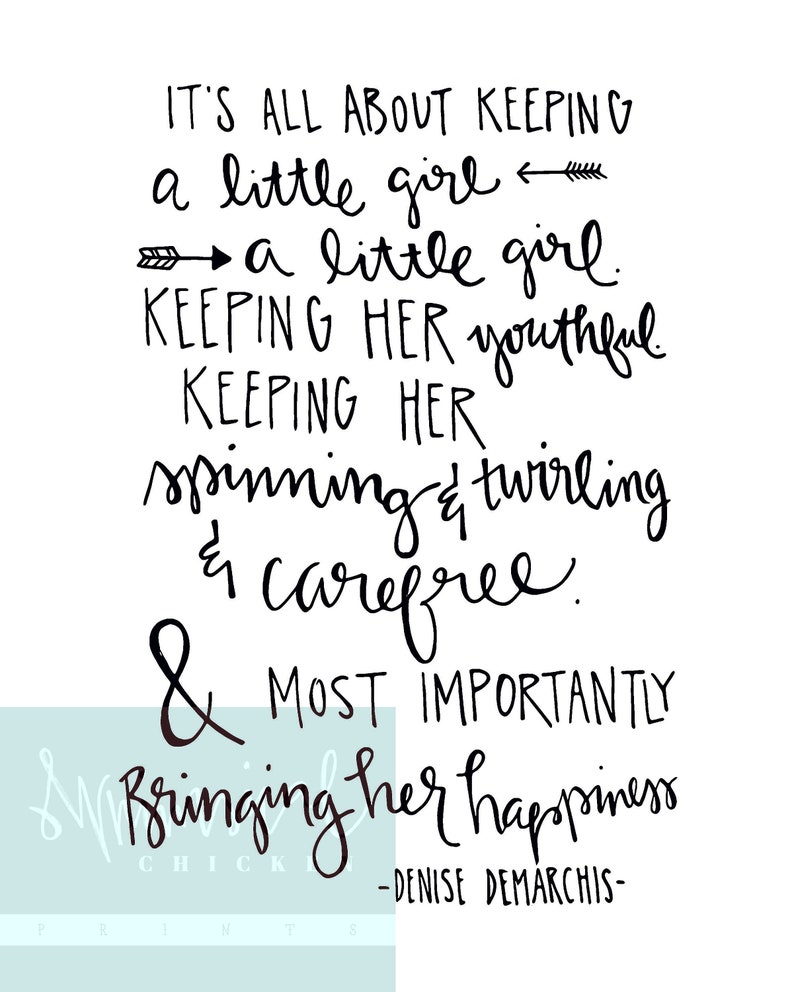 IT'S ALL ABOUT KEEPING
a little girl
a little girl.
KEEPING HER youthful.
KEEPING HER
spinning & twirling
& carefree.
& MOST IMPORTANTLY
Bringing her happiness
-DENISE DEMARCHIS-
CHICKEN
PRINTS